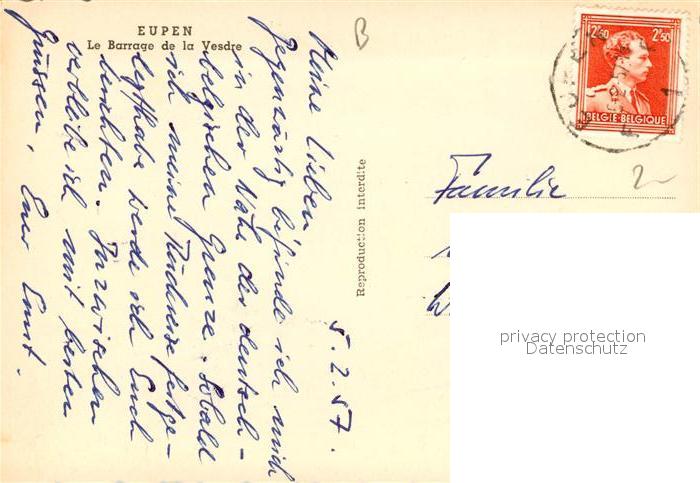 EUPEN
Le Barrage de la Vesdre
B
5. 2. 57.
Meine Lieben
Gegenwärtig befinde ich mich
in der Nähe der deutsch-
belgischen Grenze. Sobald
ich meine Reiseroute festge-
legt habe werde ich Euch
berichten. Inzwischen
verbleibe ich mit besten
Grüssen, Euer Ernst.
Reproduction Interdite
2F50 2F50
BELGIE-BELGIQUE
Familie
2
privacy protection
Datenschutz